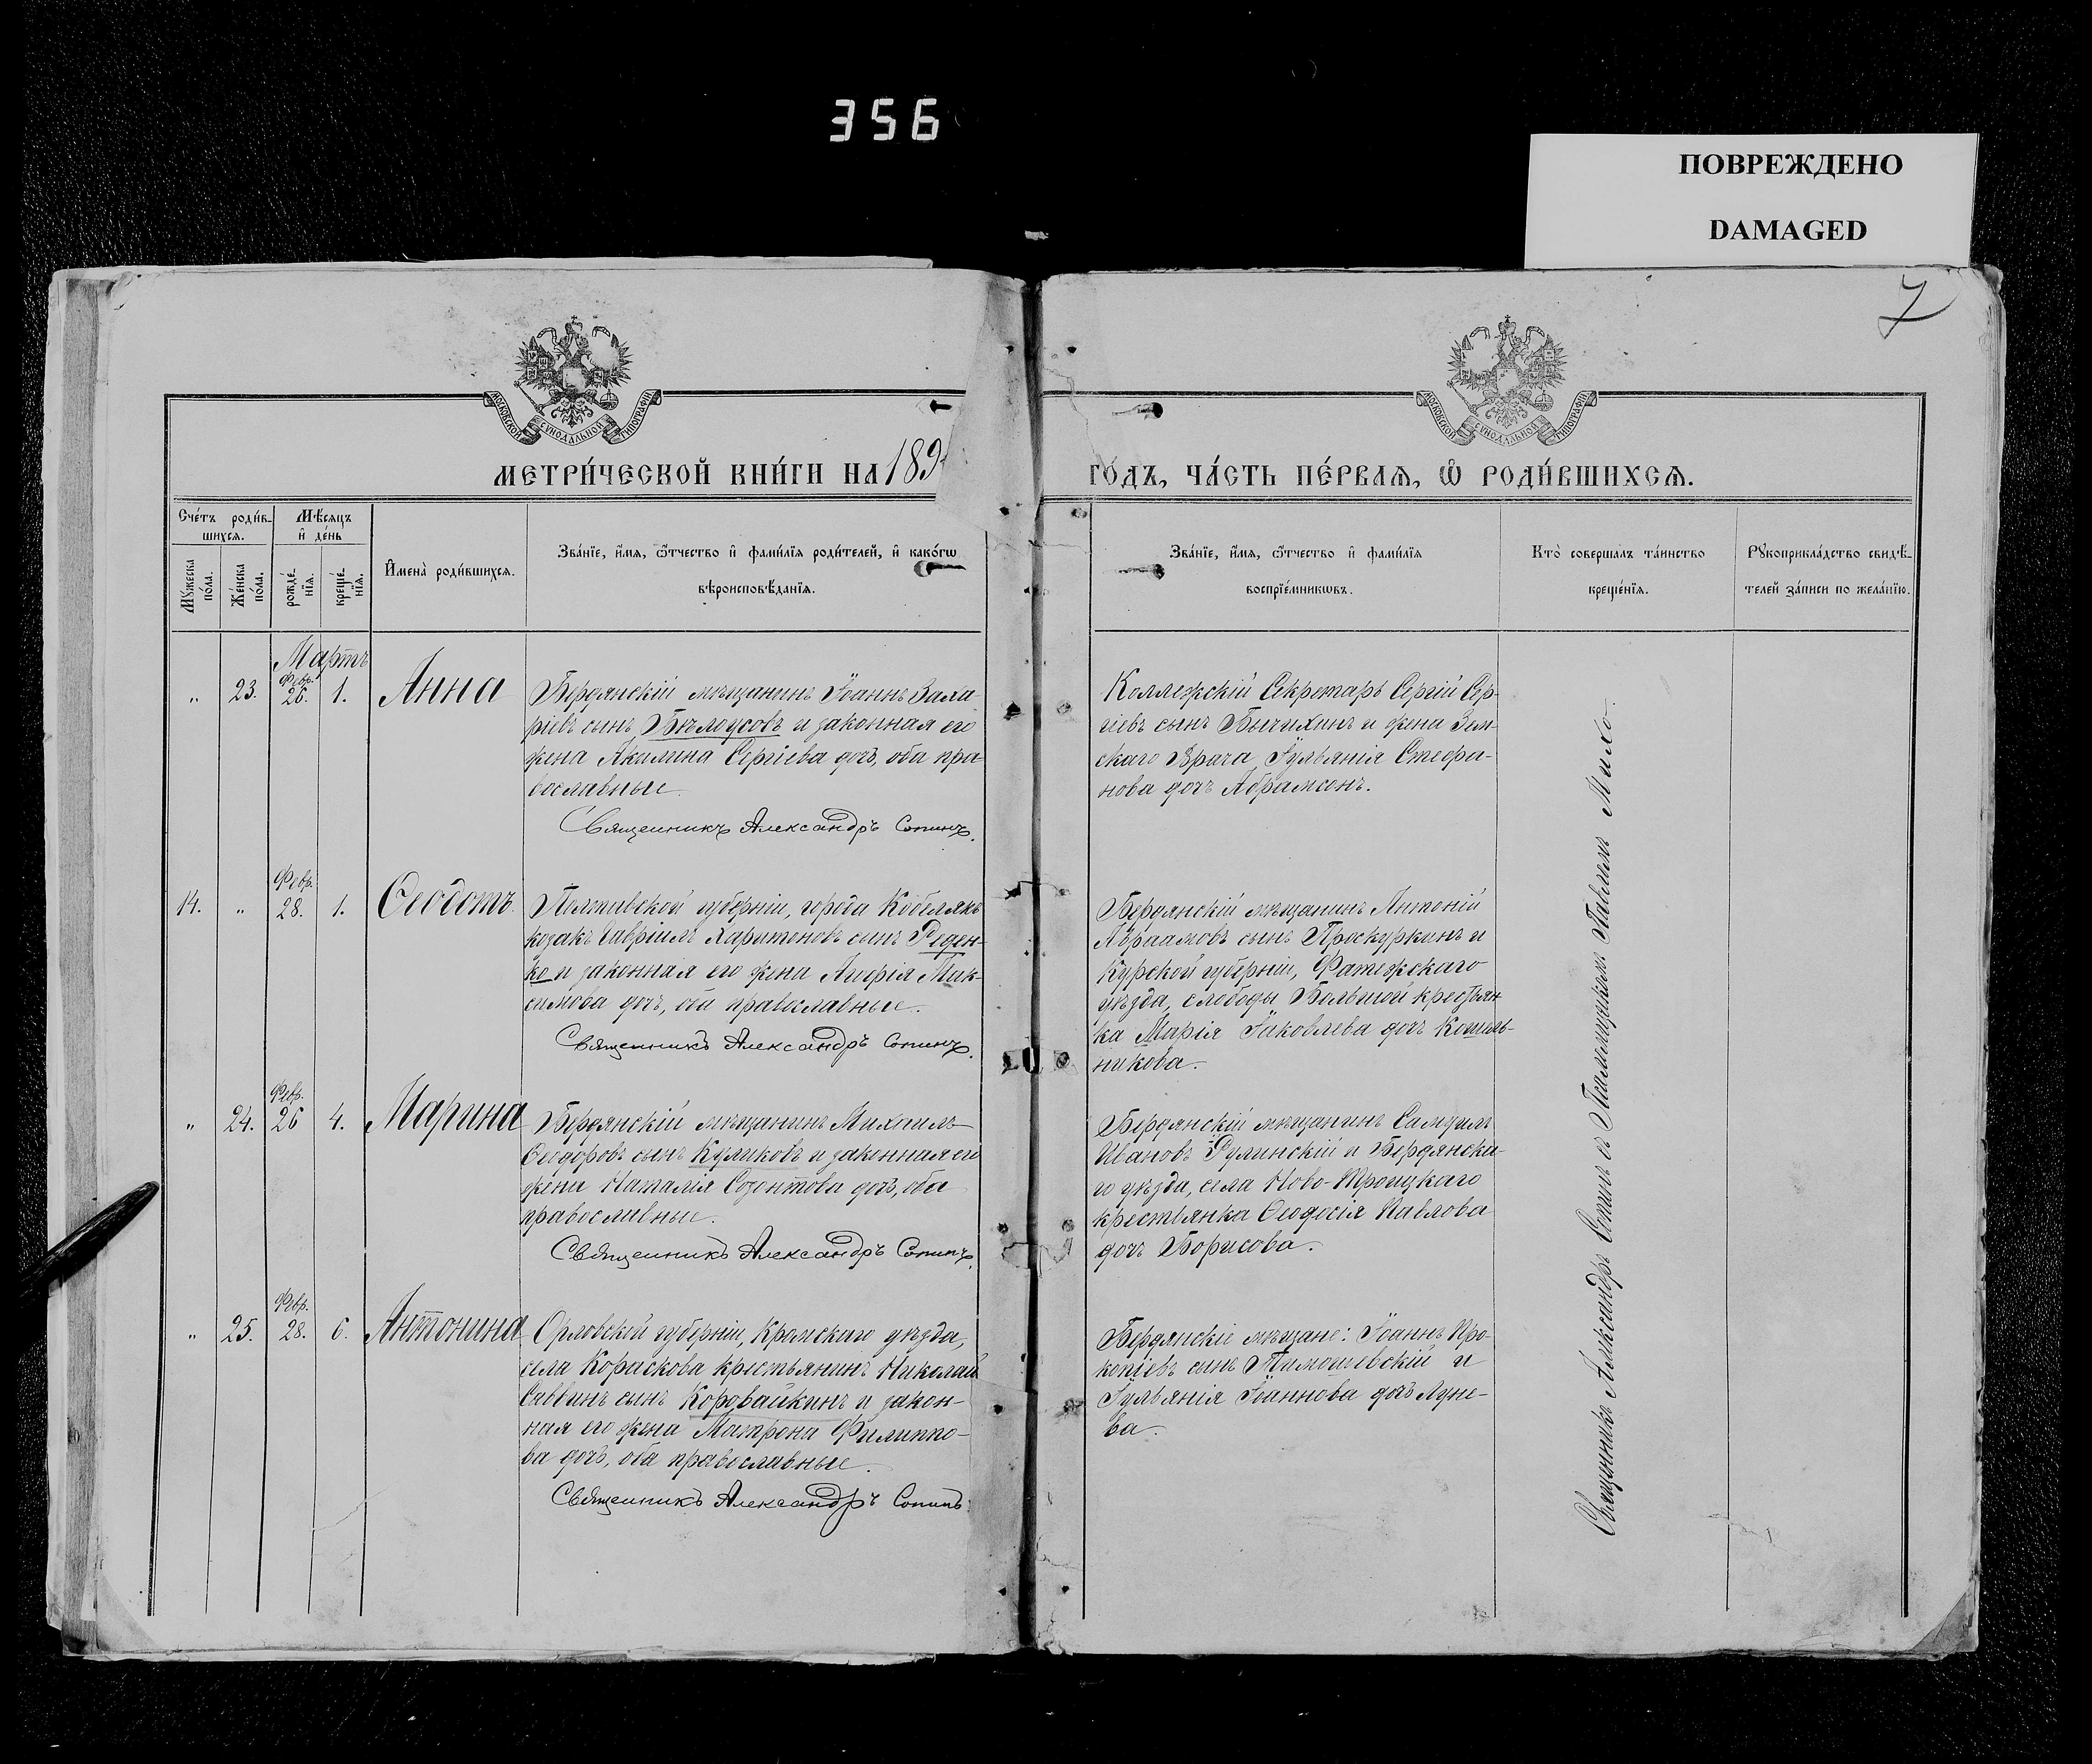 356
ПОВРЕЖДЕНО
DAMAGED
7
МОСКОВСКОЙ СѴНОДАЛЬНОЙ ТИПОГРАФІИ
МОСКОВСКОЙ СѴНОДАЛЬНОЙ ТИПОГРАФІИ
МЕТРИ́ЧЕСКОЙ КНИ́ГИ НА 189
ГО́ДЪ, ЧА́СТЬ ПЕ́РВАѦ, Ѡ҆ РОДИ́ВШИХСѦ.
Сче́тъ роди́в-
шихся.
Мѣ́сяцъ
и҆ де́нь
Мꙋ́жеска по́ла.
Же́нска по́ла.
рожде́-
нїя.
креще́-
нїя.
И҆мена̀ роди́вшихся.
Зва́нїе, и҆́мя, ѻ҆́тчество и҆ фами́лїя роди́телей, и҆ како́гѡ
вѣроисповѣ́данїя.
Зва́нїе, и҆́мя, ѻ҆́тчество и҆ фами́лїя
воспрїе́мникѡвъ.
Кто̀ совершалъ та́инство
креще́нїя.
Рꙋкоприкла́дство свидѣ́-
телей за́писи по жела́нїю.
Мартъ
„ 23. Февр. 26. 1. Анна
Бердянскій мѣщанинъ Іоаннъ Зала-
ріевъ сынъ Бѣлоусовъ и законная его
жена Акилина Сергіева дочь, оба пра-
вославные.
Священникъ Александръ Сопинъ.
Коллежскій Секретарь Сергій Сер-
гіевъ сынъ Бычихинъ и жена Зем-
скаго Врача Іульянія Стефа-
нова дочь Абрамсонъ.
14. „ Февр. 28. 1. Ѳеодотъ
Полтавской губерніи, города Кобелякъ
козакъ Гавріилъ Харитоновъ сынъ Реден-
ко и законная его жена Агафія Мак-
симова дочь, оба православные.
Священникъ Александръ Сопинъ.
Бердянскій мѣщанинъ Антоній
Авраамовъ сынъ Проскуркинъ и
Курской губерніи, Фатежскаго
уѣзда, слободы Большой крестьян-
ка Марія Іаковлева дочь Котель-
никова.
„ 24. Февр. 26 4. Марина
Бердянскій мѣщанинъ Михаилъ
Ѳеодоровъ сынъ Куликовъ и законная его
жена Наталія Созонтова дочь, оба
православные.
Священникъ Александръ Сопинъ.
Бердянскій мѣщанинъ Самуилъ
Ивановъ Рулинскій и Бердянска-
го уѣзда, села Ново-Троицкаго
крестьянка Ѳеодосія Павлова
дочь Борисова.
„ 25. Февр. 28. 6. Антонина
Орловской губерніи, Кромскаго уѣзда,
села Кораскова крестьянинъ Николай
Саввинъ сынъ Коровайкинъ и закон-
ная его жена Матрона Филиппо-
ва дочь, оба православные.
Священникъ Александръ Сопинъ.
Бердянскіе мѣщане: Іоаннъ Про-
копіевъ сынъ Тимошевскій и
Іульянія Іоаннова дочь Луне-
ва.
Священникъ Александръ Сопинъ съ Псаломщикомъ Павломъ